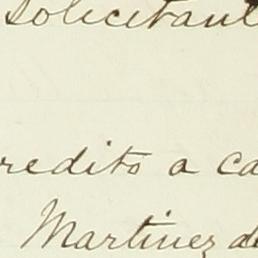 solicitant
redito a ca
Martinez de